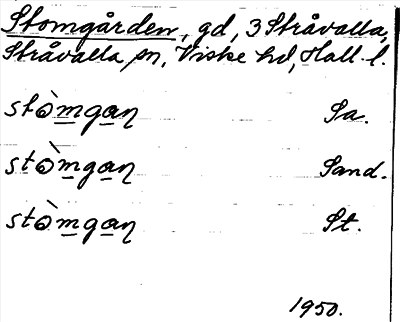 Stomgården, gd, 3 Stråvalla,
Stråvalla sn, Viske hd, Hall. l.
stòmgaɳ Sa.
stòmgaɳ Sand.
stòmgaɳ St.
1950.